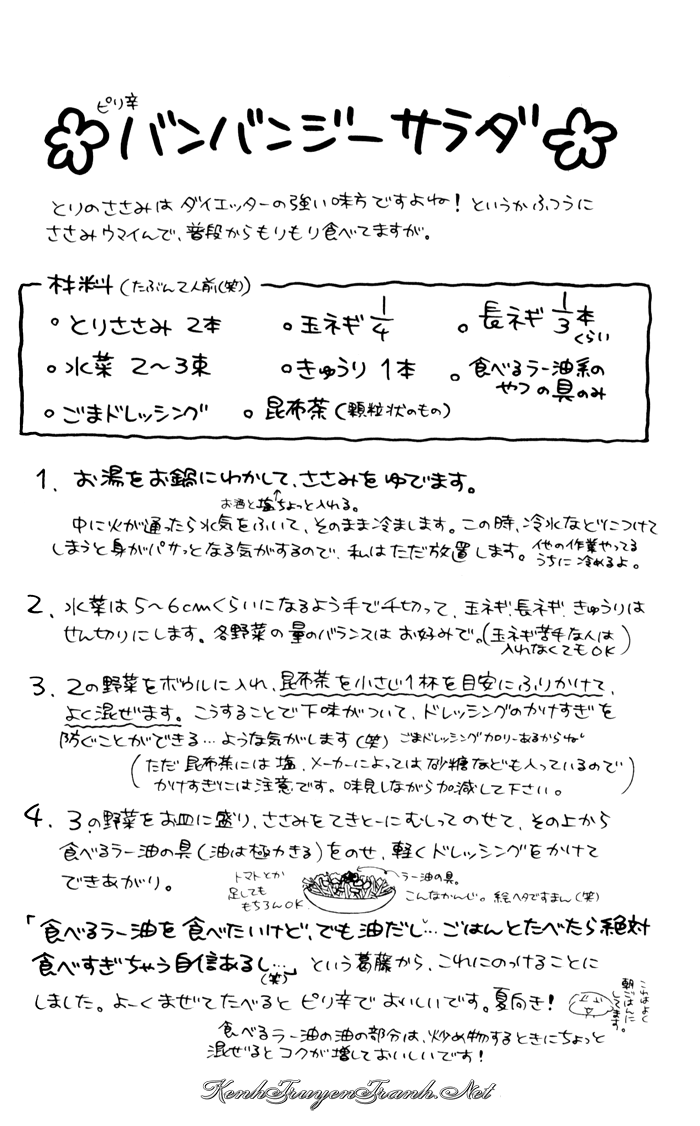 ピリ辛
バンバンジーサラダ
とりのささみは ダイエッターの強い味方ですよね！というかふつうに
ささみウマイんで、普段からもりもり食べてますが。
材料（たぶん2人前(笑)）
。とりささみ 2本 。玉ネギ 1/4 。長ネギ 1/3本くらい
。水菜 2〜3束 。きゅうり 1本 。食べるラー油系の
やつの具のみ
。ごまドレッシング 。昆布茶（顆粒状のもの）
1、お湯をお鍋にわかして、ささみをゆでます。
お酒と塩ちょっと入れる。
中に火が通ったら水気をふいて、そのまま冷まします。この時、冷水などにつけて
しまうと身がパサっとなる気がするので、私はただ放置します。他の作業やってる
うちに冷めるよ。
2、水菜は5〜6cmくらいになるよう手で千切って、玉ネギ、長ネギ、きゅうりは
せん切りにします。各野菜の量のバランスはお好みで。（玉ネギ苦手な人は
入れなくてもOK）
3、2の野菜をボウルに入れ、昆布茶を小さじ1杯を目安にふりかけて、
よく混ぜます。こうすることで下味がついて、ドレッシングのかけすぎを
防ぐことができる…ような気がします(笑) ごまドレッシングカロリーあるからね
（ただ昆布茶には塩、メーカーによっては砂糖なども入っているので
かけすぎには注意です。味見しながら加減して下さい。）
4、3の野菜をお皿に盛り、ささみをてきとーにむしってのせて、その上から
食べるラー油の具（油は極力きる）をのせ、軽くドレッシングをかけて
できあがり。
トマトとか
足しても
もちろんOK
ラー油の具。
こんなかんじ。絵ヘタですまん(笑)
「食べるラー油を食べたいけど、でも油だし…ごはんとたべたら絶対
食べすぎちゃう自信あるし…」(笑) という葛藤から、これにのっけることに
しました。よーくまぜてたべるとピリ辛でおいしいです。夏向き！
これはよく
朝ごはんに
してます。
食べるラー油の油の部分は、炒め物するときにちょっと
混ぜるとコクが増しておいしいです！
KenhTruyenTranh.Net